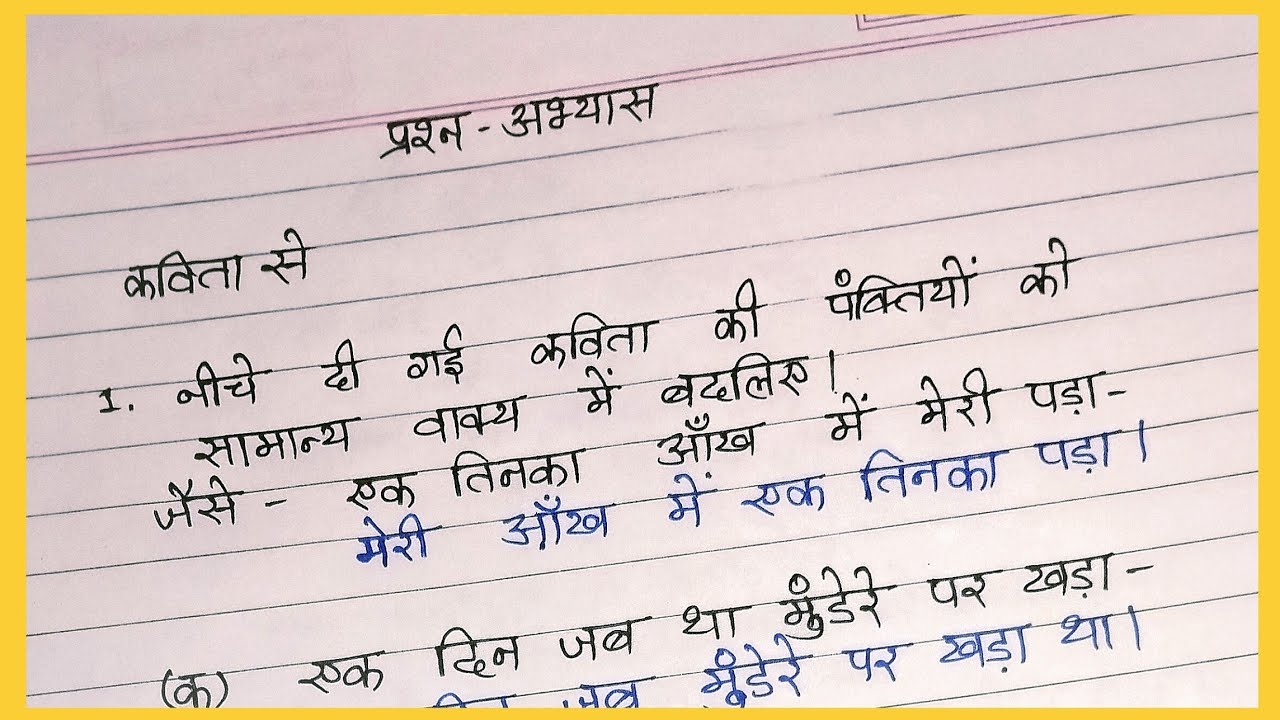 प्रश्न - अभ्यास
कविता से
1. नीचे दी गई कविता की पंक्तियों को
सामान्य वाक्य में बदलिए।
जैसे - एक तिनका आँख में मेरी पड़ा-
मेरी आँख में एक तिनका पड़ा।
(क) एक दिन जब था मुंडेरे पर खड़ा-
जब मुंडेरे पर खड़ा था।